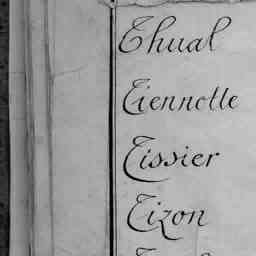 Thual
Tiennotte
Tissier
Tizon